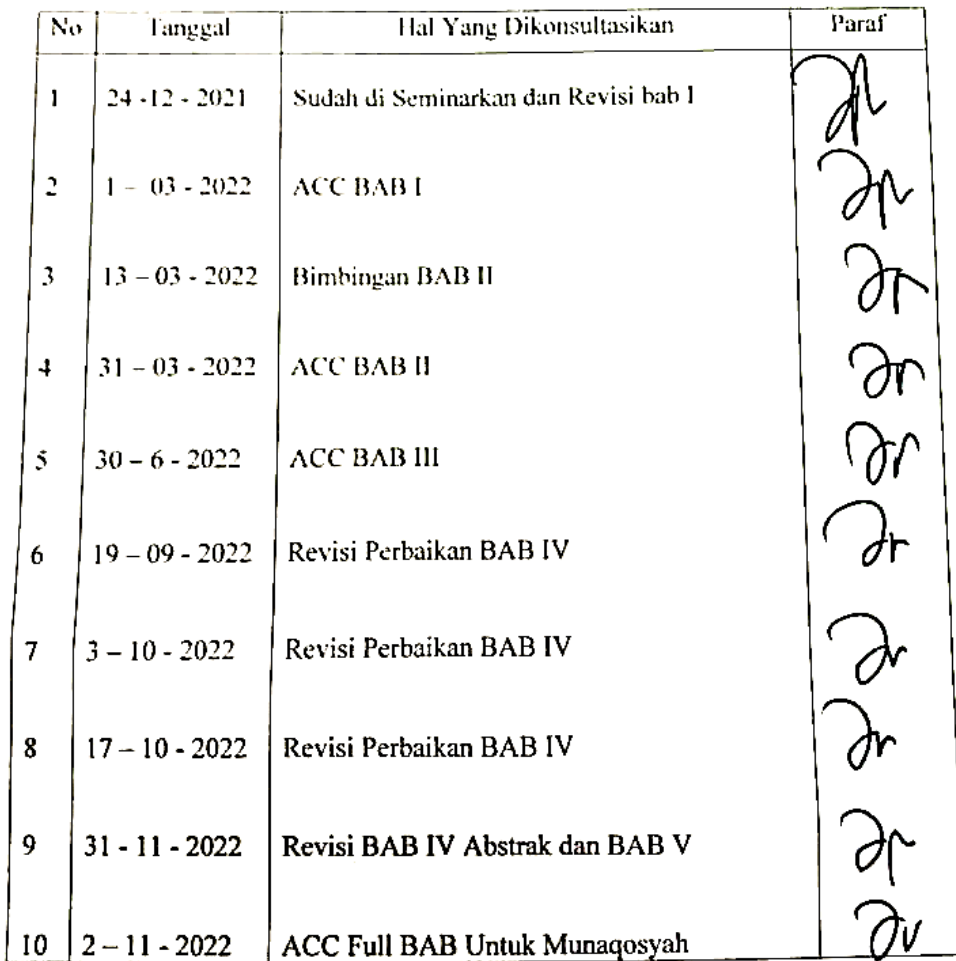 No Tanggal Hal Yang Dikonsultasikan Paraf
1 24 -12 - 2021 Sudah di Seminarkan dan Revisi bab I
2 1 – 03 - 2022 ACC BAB I
3 13 – 03 - 2022 Bimbingan BAB II
4 31 – 03 - 2022 ACC BAB II
5 30 – 6 - 2022 ACC BAB III
6 19 – 09 - 2022 Revisi Perbaikan BAB IV
7 3 – 10 - 2022 Revisi Perbaikan BAB IV
8 17 – 10 - 2022 Revisi Perbaikan BAB IV
9 31 - 11 - 2022 Revisi BAB IV Abstrak dan BAB V
10 2 – 11 - 2022 ACC Full BAB Untuk Munaqosyah